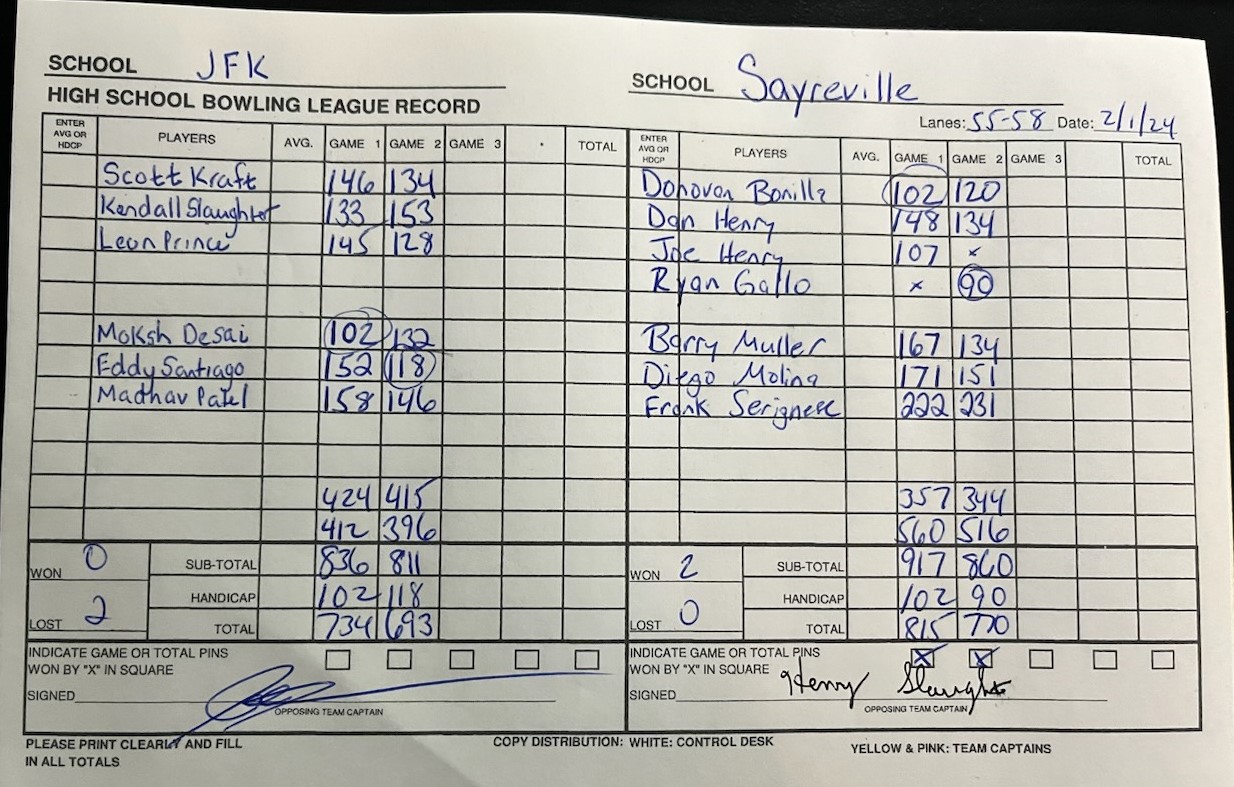 SCHOOL JFK
HIGH SCHOOL BOWLING LEAGUE RECORD
ENTER AVG OR HDCP PLAYERS AVG. GAME 1 GAME 2 GAME 3 TOTAL
Scott Kraft 146 134
Kendall Slaughter 133 153
Leon Prince 145 128
Moksh Desai 102 132
Eddy Santiago 152 118
Madhav Patel 158 146
424 415
412 396
WON 0 SUB-TOTAL 836 811
HANDICAP 102 118
LOST 2 TOTAL 734 693
INDICATE GAME OR TOTAL PINS
WON BY "X" IN SQUARE
SIGNED
OPPOSING TEAM CAPTAIN
SCHOOL Sayreville
Lanes: 55-58 Date: 2/1/24
ENTER AVG OR HDCP PLAYERS AVG. GAME 1 GAME 2 GAME 3 TOTAL
Donovan Bonilla 102 120
Dan Henry 148 134
Joe Henry 107 x
Ryan Gallo x 90
Barry Muller 167 134
Diego Molina 171 151
Frank Serignese 222 231
357 344
560 516
WON 2 SUB-TOTAL 917 860
HANDICAP 102 90
LOST 0 TOTAL 815 770
INDICATE GAME OR TOTAL PINS X X
WON BY "X" IN SQUARE
SIGNED Henry Slaughter
OPPOSING TEAM CAPTAIN
PLEASE PRINT CLEARLY AND FILL
IN ALL TOTALS
COPY DISTRIBUTION: WHITE: CONTROL DESK
YELLOW & PINK: TEAM CAPTAINS